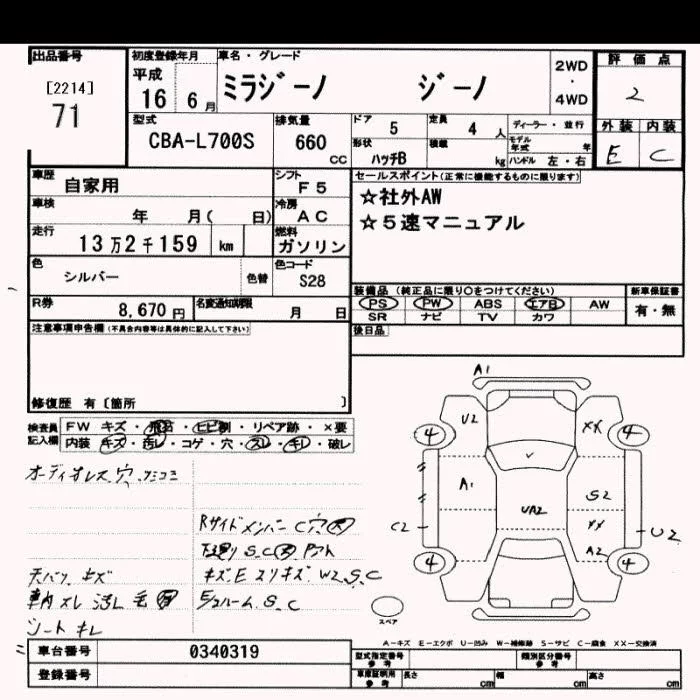 出品番号 初度登録年月 車名・グレード 評価点
[2214] 71
平成 16 6月 ミラジーノ ジーノ 2WD・4WD 2
型式 CBA-L700S 排気量 660 CC
ドア 5 定員 4人 ディーラー・並行 外装 内装
形状 ハッチB 積載 kg モデル年式 年 ハンドル 左・右 E C
車歴 自家用 シフト F5 セールスポイント(正常に機能するものに限ります)
車検 年 月( 日) 冷房 AC ☆社外AW
走行 13万2千159 km 燃料 ガソリン ☆5速マニュアル
色 シルバー 色替 色コード S28
装備品 (純正品に限り○をつけてください) 新車保証書
R券 8,670円 名変通知期限 月 日 PS PW ABS エアB AW 有・無
SR ナビ TV カワ
注意事項申告欄(不具合内容等は具体的に記入して下さい) 後日品
修復歴 有〔箇所 〕
検査員 FW キズ・飛石・ヒビ割・リペア跡・×要
記入欄 内装 キズ・汚レ・コゲ・穴・スレ・キレ・破レ
オーディオレス 穴
Rサイドメンバー C穴
S.C
天バリ キズ キズ.E スリキズ W2.S.C
車内 スレ 汚レ S.C
シート キレ
A1
U2 XX
4 4
A1 S2
UA2
C2 XX U2
A2
4 4
スペア
A-キズ E-エクボ U-凹み W-補修跡 S-サビ C-腐食 XX-交換済
車台番号 0340319 型式指定番号 参考 類別区分番号 参考
登録番号 車庫証明用 参考 長さ cm 幅 cm 高さ cm